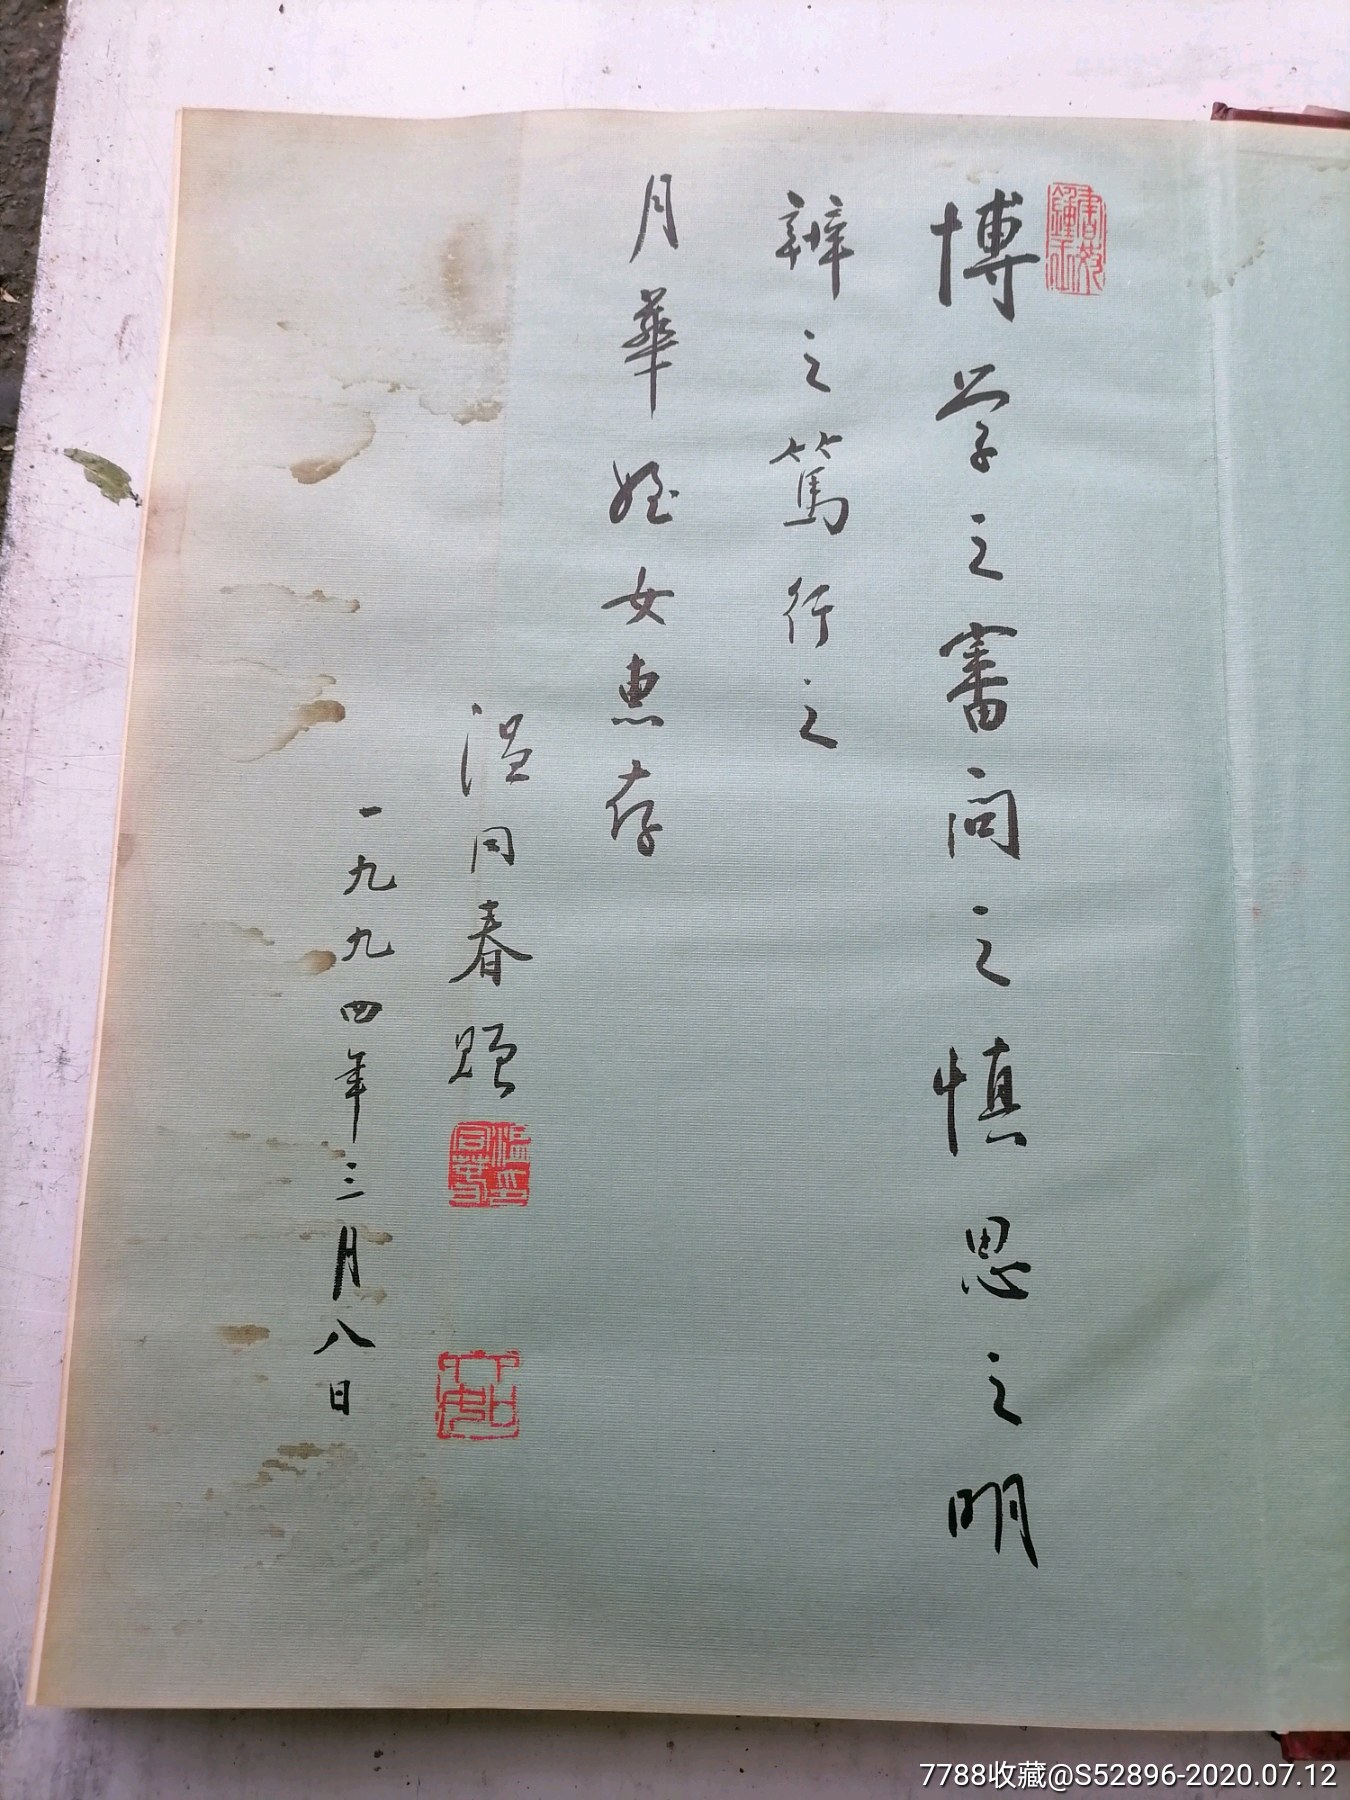 博学之審问之慎思之明
辨之篤行之
月華姪女惠存
温同春赠
一九九四年三月八日
7788收藏@S52896-2020.07.12